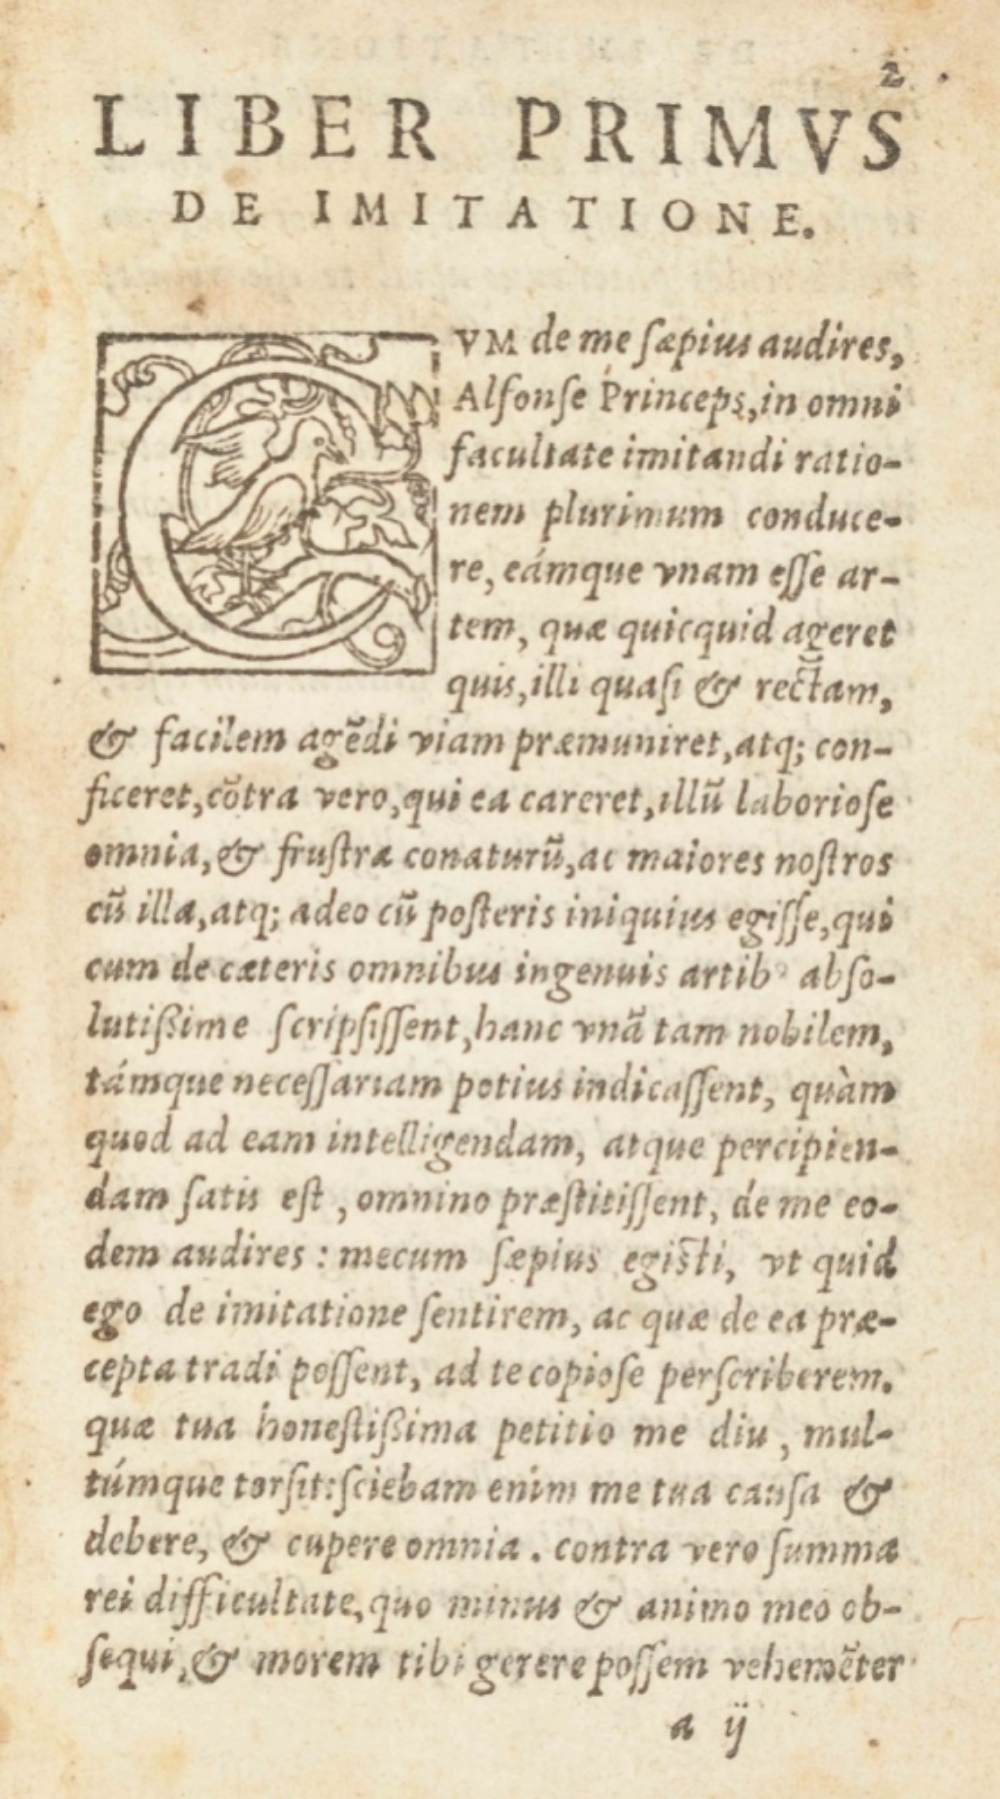 2
LIBER PRIMVS
DE IMITATIONE.
CVM de me sæpius audires,
Alfonse Princeps, in omni
facultate imitandi ratio-
nem plurimum conduce-
re, eámque vnam esse ar-
tem, quæ quicquid ageret
quis, illi quasi & rectam,
& facilem agẽdi viam præmuniret, atq; con-
ficeret, cõtra vero, qui ea careret, illũ laboriose
omnia, & frustra conaturũ, ac maiores nostros
cũ illa, atq; adeo cũ posteris iniquius egisse, qui
cum de cæteris omnibus ingenuis artibꝰ abso-
lutißime scripsissent, hanc vnã tam nobilem,
támque necessariam potius indicassent, quàm
quod ad eam intelligendam, atque percipien-
dam satis est, omnino præstitissent, de me eo-
dem audires : mecum sæpius egisti, vt quid
ego de imitatione sentirem, ac quæ de ea præ-
cepta tradi possent, ad te copiose perscriberem.
quæ tua honestißima petitio me diu, mul-
túmque torsit: sciebam enim me tua causa &
debere, & cupere omnia. contra vero summa
rei difficultate, quo minus & animo meo ob-
sequi, & morem tibi gerere possem vehemẽter
a ij